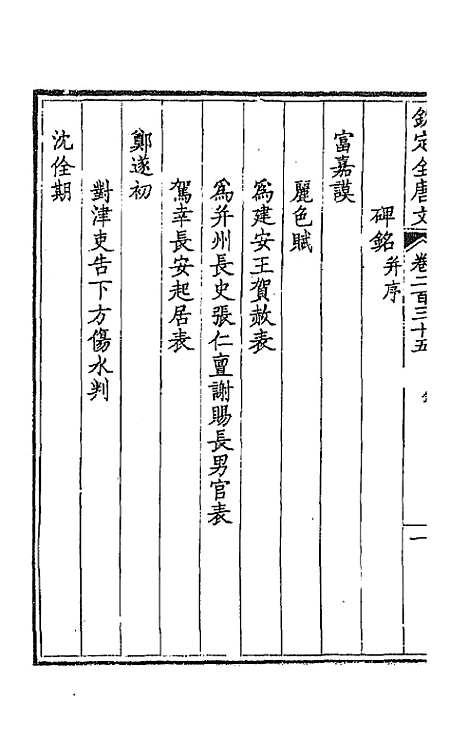 欽定全唐文 卷二百三十五
一
碑銘并序
富嘉謨
麗色賦
爲建安王賀赦表
爲并州長史張仁亶謝賜長男官表
駕幸長安起居表
鄭遂初
對津吏告下方傷水判
沈佺期